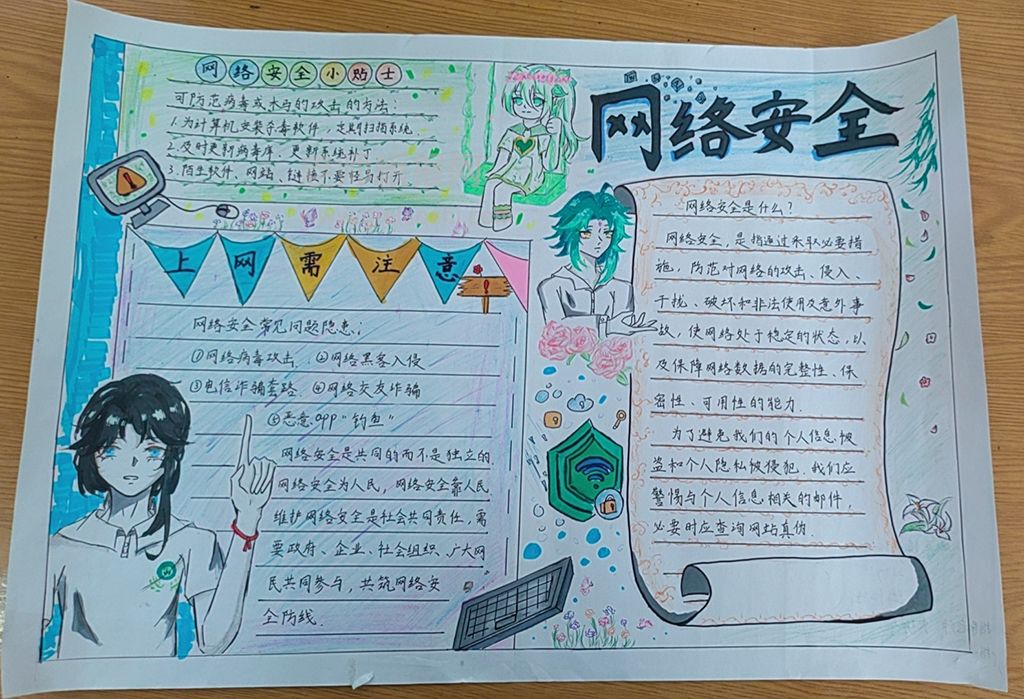 网络安全小贴士
可防范病毒或木马的攻击的方法：
1.为计算机安装杀毒软件，定期扫描系统
2.及时更新病毒库、更新系统补丁
3.陌生软件、网站、链接不要轻易打开
网络安全
上网需注意
网络安全常见问题隐患：
①网络病毒攻击 ②网络黑客入侵
③电信诈骗套路 ④网络交友诈骗
⑤恶意app“钓鱼”
网络安全是共同的而不是独立的
网络安全为人民，网络安全靠人民
维护网络安全是社会共同责任，需
要政府、企业、社会组织、广大网
民共同参与，共筑网络安
全防线.
网络安全是什么？
网络安全，是指通过采取必要措
施，防范对网络的攻击、侵入、
干扰、破坏和非法使用及意外事
故，使网络处于稳定的状态，以
及保障网络数据的完整性、保
密性、可用性的能力.
为了避免我们的个人信息被
盗和个人隐私被侵犯.我们应
警惕与个人信息相关的邮件，
必要时应查询网站真伪.